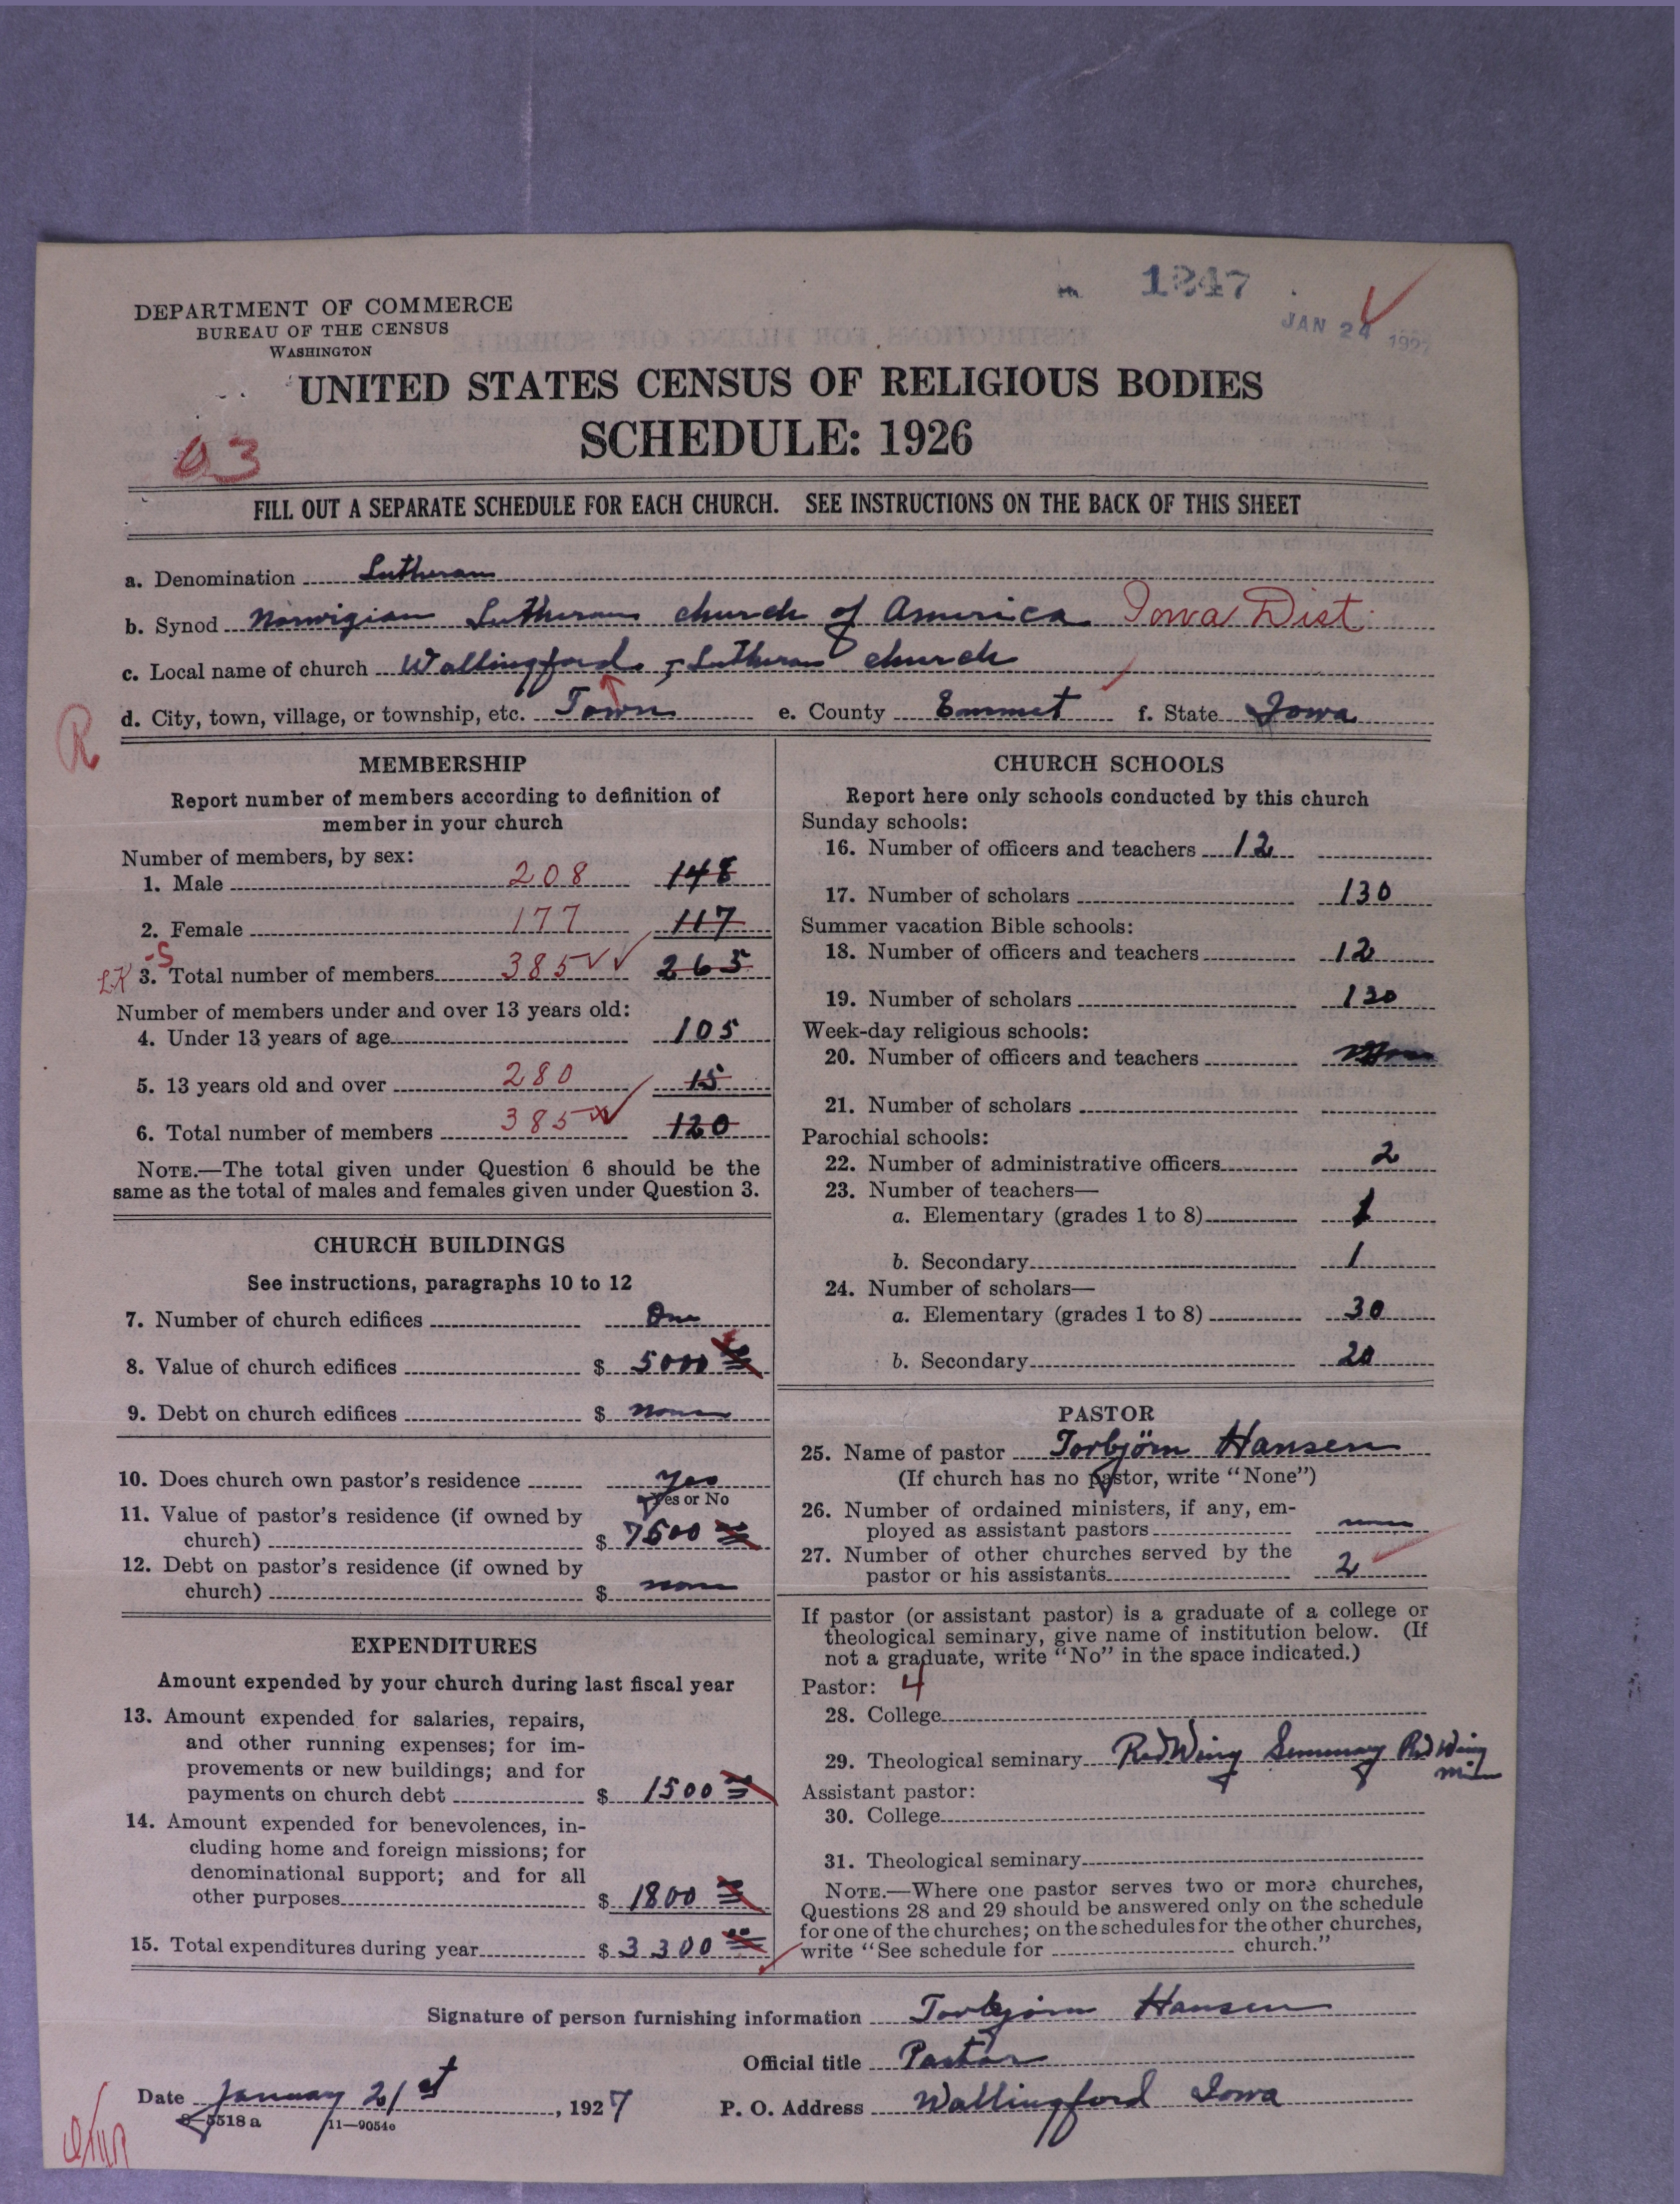 1247
JAN 24 1927
DEPARTMENT OF COMMERCE
BUREAU OF THE CENSUS
WASHINGTON
UNITED STATES CENSUS OF RELIGIOUS BODIES
SCHEDULE: 1926
03
FILL OUT A SEPARATE SCHEDULE FOR EACH CHURCH. SEE INSTRUCTIONS ON THE BACK OF THIS SHEET
a. Denomination Lutheran
b. Synod Norwigian Lutheran church of America Iowa Dist.
c. Local name of church Wallingford, Lutheran church
d. City, town, village, or township, etc. Town e. County Emmet f. State Iowa
R
MEMBERSHIP
Report number of members according to definition of
member in your church
Number of members, by sex:
1. Male 208 148
2. Female 177 117
3. Total number of members 385 265
Number of members under and over 13 years old:
4. Under 13 years of age 105
5. 13 years old and over 280 15
6. Total number of members 385 120
NOTE.—The total given under Question 6 should be the
same as the total of males and females given under Question 3.
CHURCH BUILDINGS
See instructions, paragraphs 10 to 12
7. Number of church edifices One
8. Value of church edifices $ 5000
9. Debt on church edifices $ none
10. Does church own pastor's residence yes
Yes or No
11. Value of pastor's residence (if owned by
church) $ 7500
12. Debt on pastor's residence (if owned by
church) $ none
EXPENDITURES
Amount expended by your church during last fiscal year
13. Amount expended for salaries, repairs,
and other running expenses; for im-
provements or new buildings; and for
payments on church debt $ 1500
14. Amount expended for benevolences, in-
cluding home and foreign missions; for
denominational support; and for all
other purposes $ 1800
15. Total expenditures during year $ 3300
CHURCH SCHOOLS
Report here only schools conducted by this church
Sunday schools:
16. Number of officers and teachers 12
17. Number of scholars 130
Summer vacation Bible schools:
18. Number of officers and teachers 12
19. Number of scholars 130
Week-day religious schools:
20. Number of officers and teachers
21. Number of scholars
Parochial schools:
22. Number of administrative officers 2
23. Number of teachers—
a. Elementary (grades 1 to 8) 1
b. Secondary 1
24. Number of scholars—
a. Elementary (grades 1 to 8) 30
b. Secondary 20
PASTOR
25. Name of pastor Torbjörn Hansen
(If church has no pastor, write "None")
26. Number of ordained ministers, if any, em-
ployed as assistant pastors none
27. Number of other churches served by the
pastor or his assistants 2
If pastor (or assistant pastor) is a graduate of a college or
theological seminary, give name of institution below. (If
not a graduate, write "No" in the space indicated.)
Pastor: 4
28. College
29. Theological seminary Red Wing Seminary Red Wing
Minn
Assistant pastor:
30. College
31. Theological seminary
NOTE.—Where one pastor serves two or more churches,
Questions 28 and 29 should be answered only on the schedule
for one of the churches; on the schedules for the other churches,
write "See schedule for church."
Signature of person furnishing information Torbjörn Hansen
Official title Pastor
Date January 21st, 1927 P. O. Address Wallingford Iowa
8-5518a 11—9054o